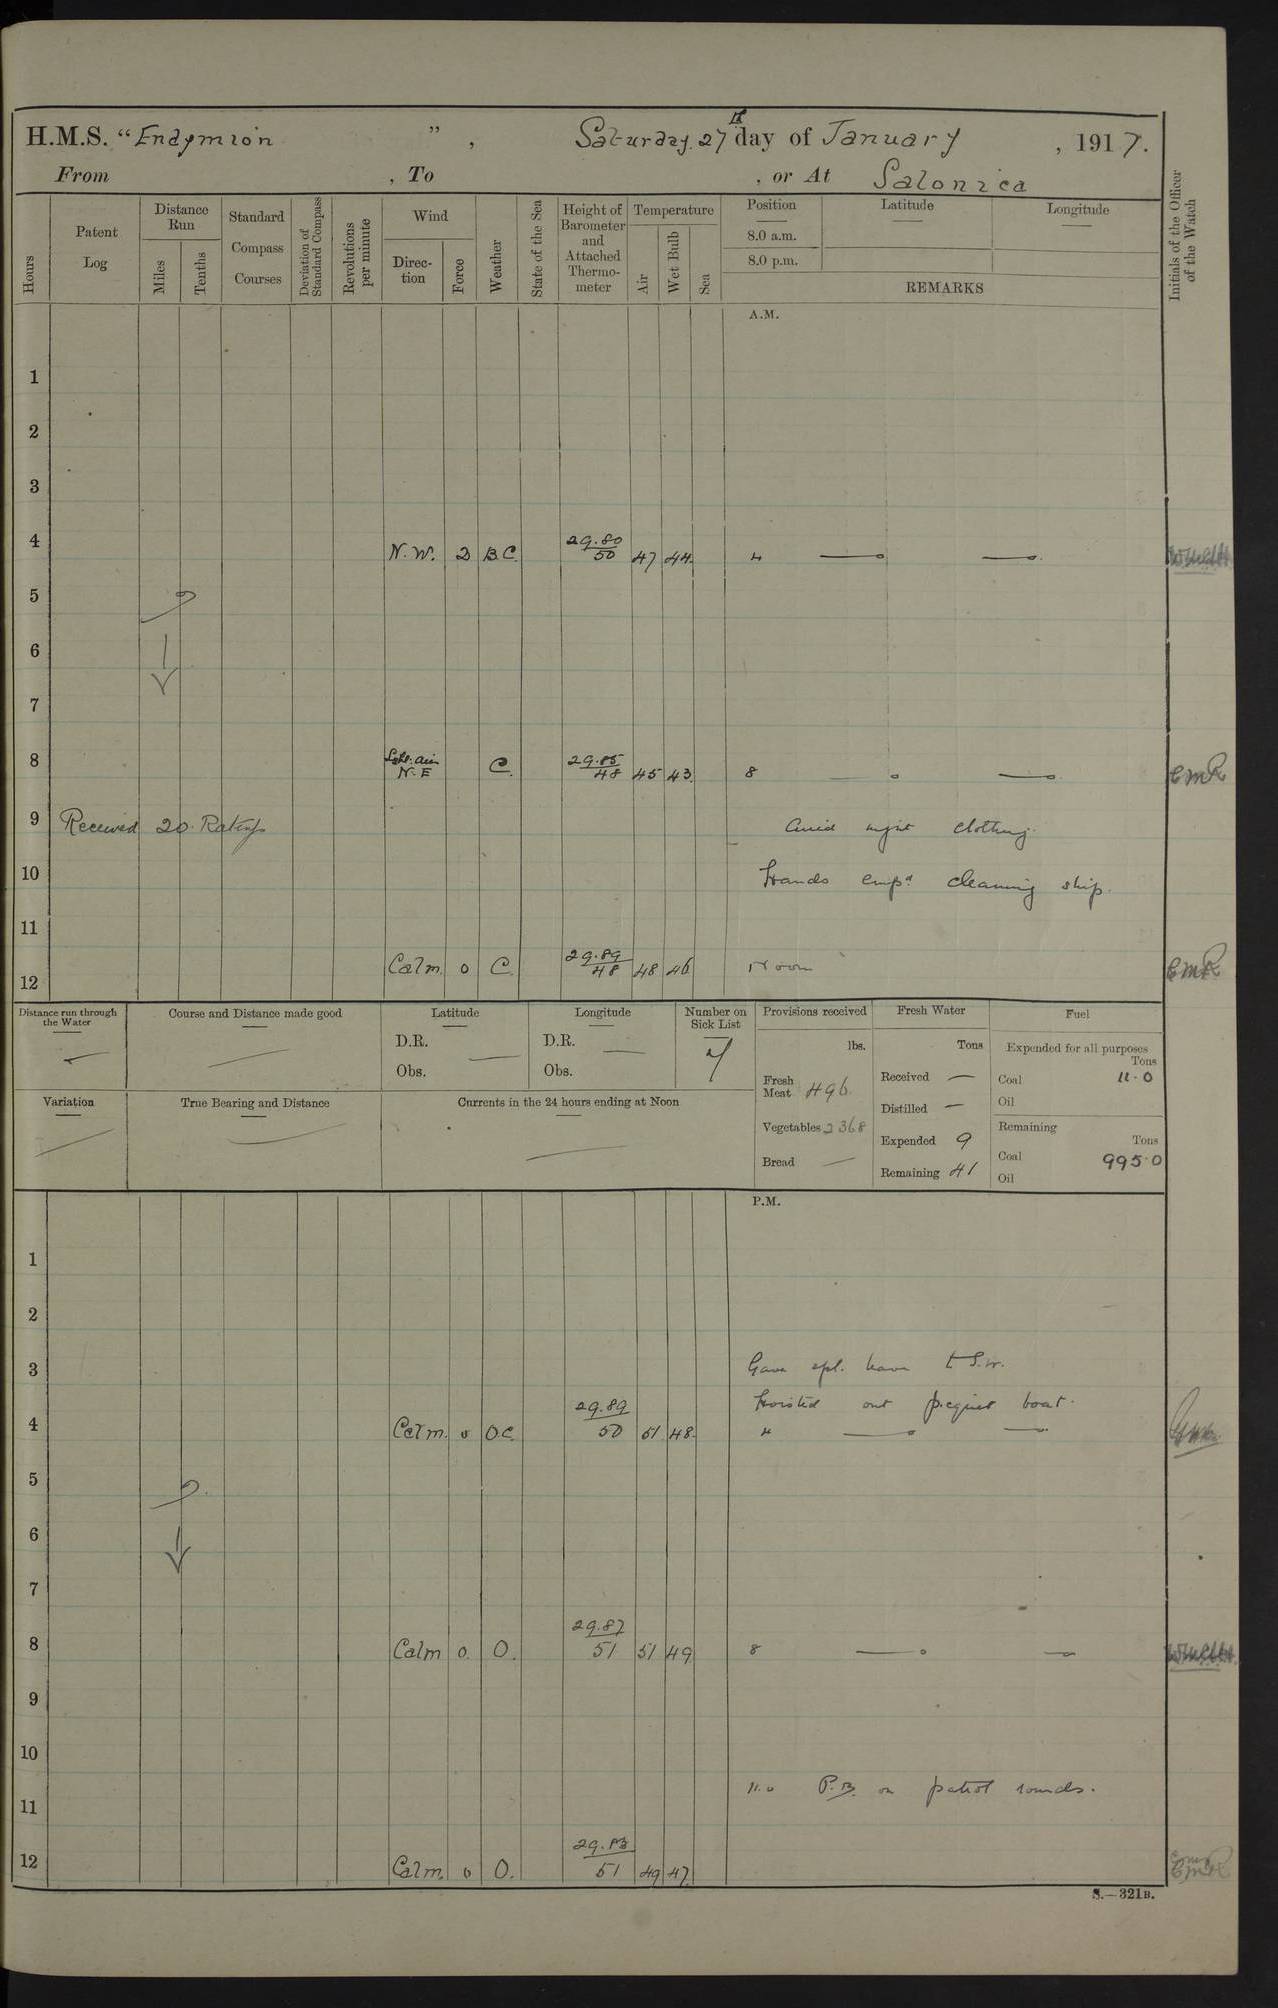 H.M.S. “Endymion ”, Saturday 27th day of January, 1917.
From , To , or At Salonica
Hours
Patent Log
Distance Run
Miles
Tenths
Standard Compass Courses
Deviation of Standard Compass
Revolutions per minute
Wind
Direc-tion
Force
Weather
State of the Sea
Height of Barometer and Attached Thermo-meter
Temperature
Air
Wet Bulb
Sea
Position
Latitude
Longitude
8.0 a.m.
8.0 p.m.
REMARKS
Initials of the Officer of the Watch
A.M.
1
2
3
4 N.W. 2 B.C. 29.80/50 47 44 4
5
6
7
8 N.E C. 29.85/48 45 43 8 EMR
9 Received 20 Ratings night clothing.
10 Hands empd cleaning ship.
11
12 Calm 0 C. 29.89/48 48 46 Noon EMR
Distance run through the Water
Course and Distance made good
Latitude
D.R.
Obs.
Longitude
D.R.
Obs.
Number on Sick List
7
Provisions received
lbs.
Fresh Meat 496
Vegetables 2368
Bread —
Fresh Water
Tons
Received —
Distilled —
Expended 9
Remaining 41
Fuel
Expended for all purposes
Tons
Coal 11.0
Oil
Remaining
Tons
Coal 995.0
Oil
Variation
True Bearing and Distance
Currents in the 24 hours ending at Noon
P.M.
1
2
3 Gave spl. leave
Hoisted out picquet boat.
4 Calm. 0 O.C. 29.89/50 51 48
5
6
7
8 Calm 0. O. 29.87/51 51 49 8
9
10
11.0 P.B. on patrol rounds.
11
12 Calm. 0 O. 29.83/51 49 47. EMR
S.—321B.